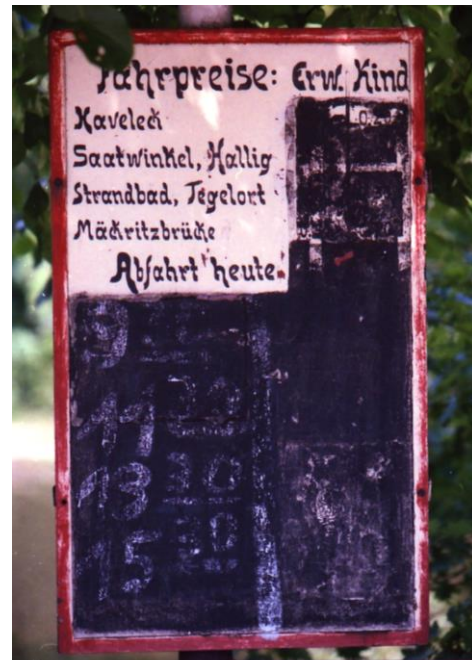 Fahrpreise: Erw. Kind
Kaveleck
Saatwinkel, Hallig
Strandbad, Tegelort
Mäckritzbrücke
Abfahrt heute:
9
11
13 30
15 30